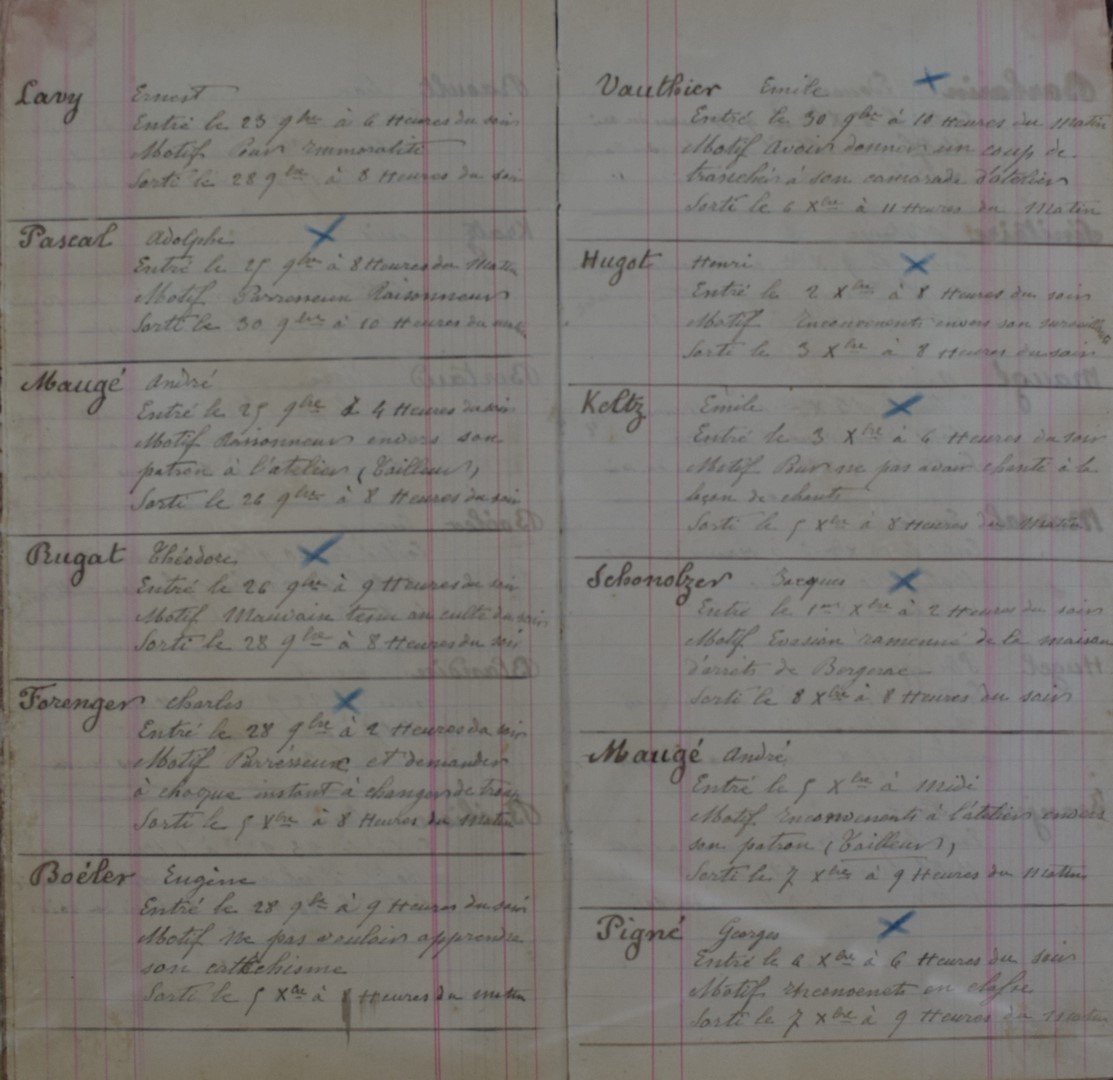 Lavy Ernest
Entré le 23 9bre à 6 Heures du soir
Motif Pour Immoralité
Sorti le 28 9bre à 8 Heures du soir
Pascal Adolphe
Entré le 25 9bre à 8 Heures du Matin
Motif Parresseux Raisonneur
Sorti le 30 9bre à 10 Heures du
Maugé André
Entré le 25 9bre à 4 Heures du soir
Motif Raisonneur envers son
patron à l'atelier (Tailleur)
Sorti le 26 9bre à 8 Heures du soir
Rugat Théodore
Entré le 26 9bre à 9 Heures du soir
Motif Mauvaise tenue au culte du soir
Sorti le 28 9bre à 8 Heures du soir
Forenger Charles
Entré le 28 9bre à 2 Heures du soir
Motif Parresseux et demander
à chaque instant à changer de
Sorti le 5 Xbre à 8 Heures du Matin
Boéler Eugène
Entré le 28 9bre à 9 Heures du soir
Motif Ne pas vouloir apprendre
son cathchisme
Sorti le 5 Xbre à 8 Heures du matin
Vauthier Emile
Entré le 30 9bre à 10 Heures du Matin
Motif Avoir donner un coup de
tranchir à son camarade d'atelier
Sorti le 6 Xbre à 11 Heures du Matin
Hugot Henri
Entré le 2 Xbre à 8 Heures du soir
Motif Inconvenents envers son surveillant
Sorti le 3 Xbre à 8 Heures du soir
Keltz Emile
Entré le 3 Xbre à 6 Heures du soir
Motif Pour ne pas avoir chanté à la
leçon de chants
Sorti le 5 Xbre à 8 Heures du Matin
Schonolzer Jacques
Entré le 1er Xbre à 2 Heures du soir
Motif Evasion ramenné de la maison
d'arrêts de Bergerac
Sorti le 8 Xbre à 8 Heures du soir
Maugé André
Entré le 5 Xbre à Midi
Motif inconvenents à l'atelier envers
son patron (Tailleur)
Sorti le 7 Xbre à 9 Heures du Matin
Pigné Georges
Entré le 6 Xbre à 6 Heures du soir
Motif Inconvenents en classe
Sorti le 7 Xbre à 9 Heures du Matin